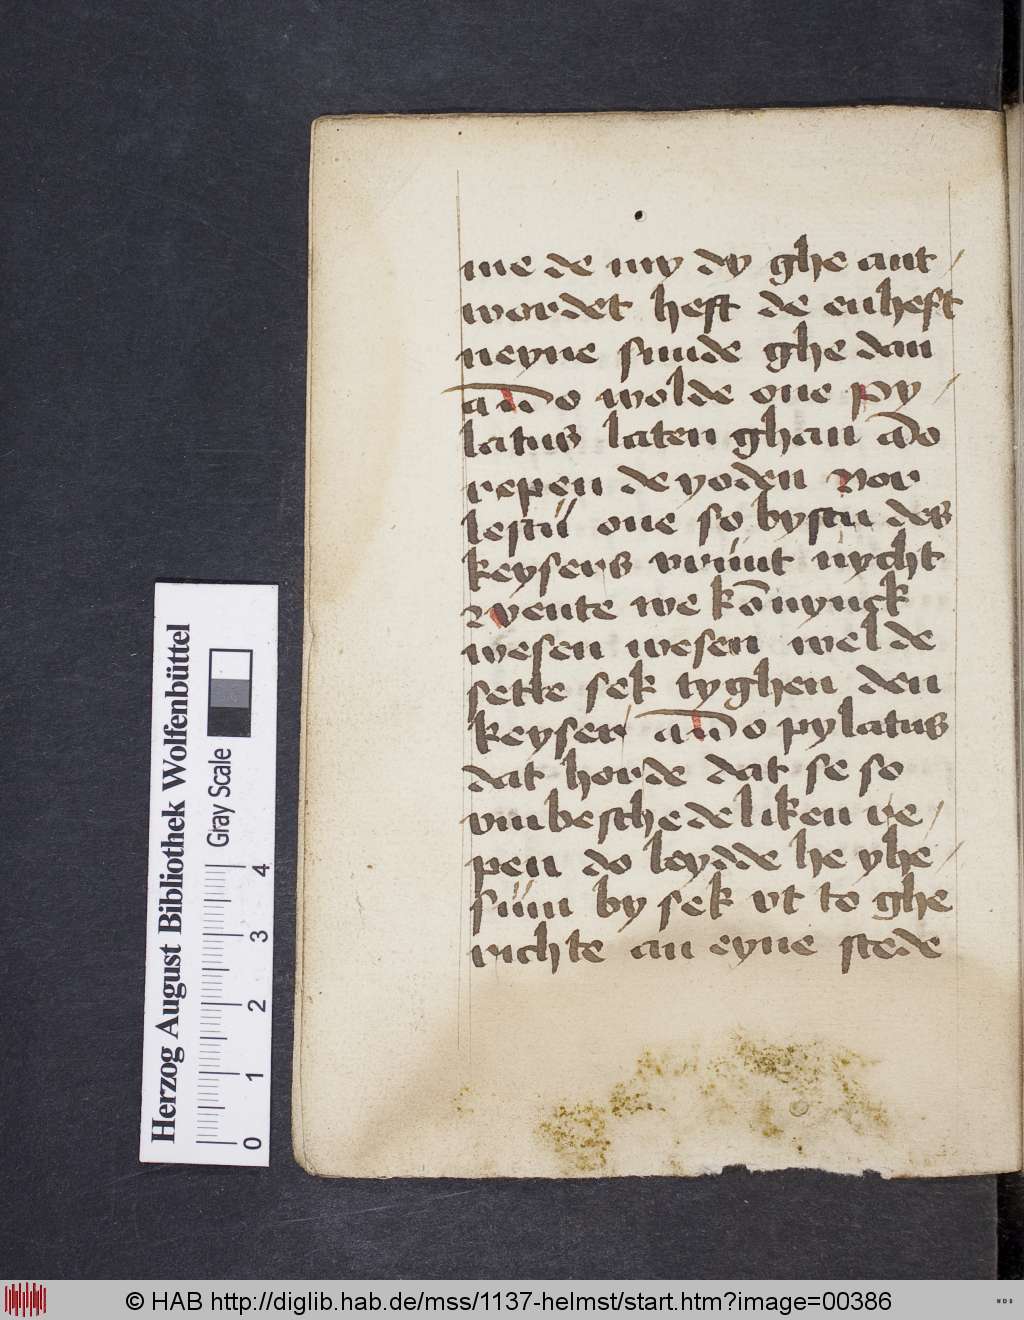 me de my dy ghe ant/
wordet heft de en heft
neyne sunde ghe dan
an̄o wolde one py/
latus laten ghan ādo
repen de yoden vor
lestu one so bystu des
keysers vrunt nycht
wente we kōnynck
wesen wesen welde
sette sek tyghen den
keyser an̄o pylatus
dat horde dat se so
vnbeschedeliken re/
pen do leydde he yhe/
sum by sek vt to ghe
richte an eyne stede
Herzog August Bibliothek Wolfenbüttel
Gray Scale
0 1 2 3 4
© HAB http://diglib.hab.de/mss/1137-helmst/start.htm?image=00386